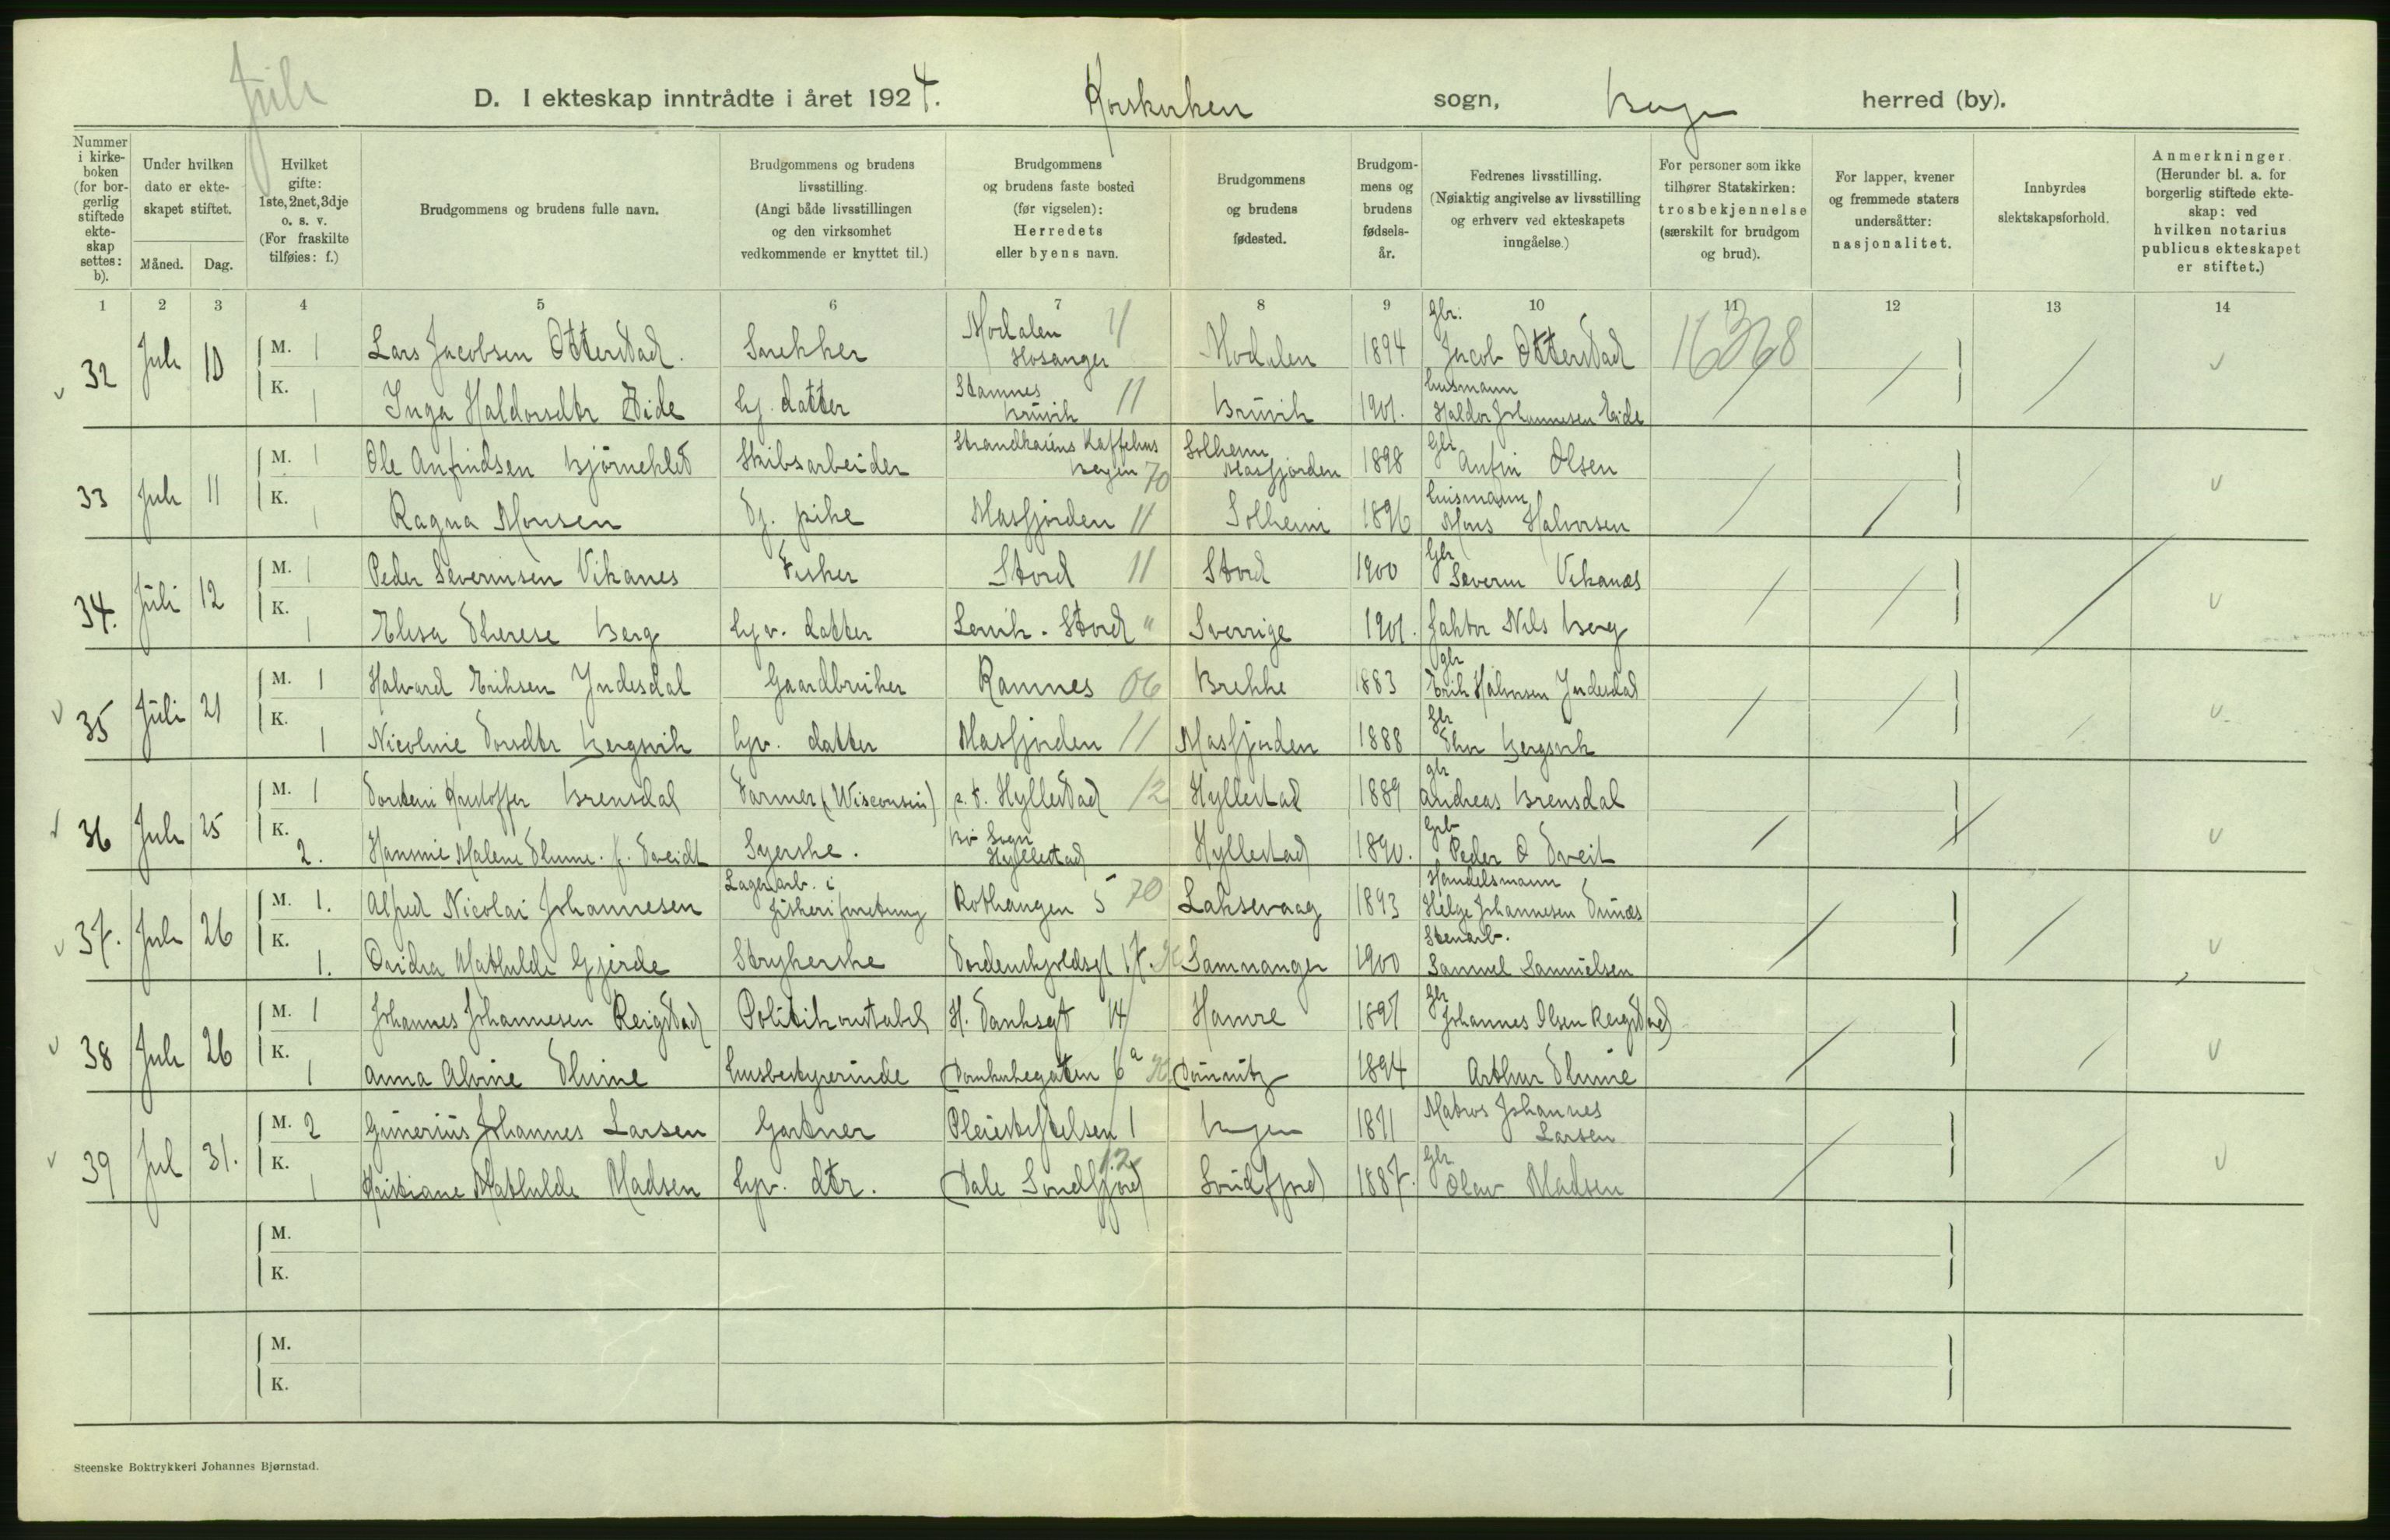 Juli
D. I ekteskap inntrådte i året 1924. Korskirken sogn, Bergen herred (by).
Nummer i kirkeboken (for borgerlig stiftede ekteskap settes: b).
Under hvilken dato er ekteskapet stiftet.
Måned. Dag.
Hvilket gifte: 1ste, 2net, 3dje o. s. v. (For fraskilte tilføies: f.)
Brudgommens og brudens fulle navn.
Brudgommens og brudens livsstilling. (Angi både livsstillingen og den virksomhet vedkommende er knyttet til.)
Brudgommens og brudens faste bosted (før vigselen): Herredets eller byens navn.
Brudgommens og brudens fødested.
Brudgommens og brudens fødselsår.
Fedrenes livsstilling. (Nøiaktig angivelse av livsstilling og erhverv ved ekteskapets inngåelse.)
For personer som ikke tilhører Statskirken: trosbekjennelse (særskilt for brudgom og brud).
For lapper, kvener og fremmede staters undersåtter: nasjonalitet.
Innbyrdes slektskapsforhold.
Anmerkninger. (Herunder bl. a. for borgerlig stiftede ekteskap: ved hvilken notarius publicus ekteskapet er stiftet.)
1 2 3 4 5 6 7 8 9 10 11 12 13 14
32 Juli 10 M. 1 Lars Jacobsen Otterstad. Snekker Modalen Hosanger 11 Modalen 1894 Gbr. Jacob Otterstad 16368
K. 1 Inga Haldorsdtr Eide Hj. datter Stamnes Bruvik 11 Bruvik 1901. Husmann Haldor Johannesen Eide
33 Juli 11 M. 1 Ole Anfindsen Bjørneklet Skibsarbeider Strandkaiens Kaffehus Bergen 70 Solheim Masfjorden 1898 Gbr Anfin Olsen
K. 1 Ragna Monsen Tj. pike Masfjorden 11 Solheim 1896 Husmann Mons Halvorsen
34. Juli 12 M. 1 Peder Severinsen Vikanes Fisker Stord 11 Stord 1900 Gbr Severin Vikanes
K. 1 Elisa Therese Berg Hjv. datter Lervik - Stord " Sverrige 1901. faktor Nils Berg
35 Juli 21 M. 1 Halvard Eriksen Yndesdal Gaardbruker Ramnes 06 Brekke 1883 gbr Erik Halvorsen Yndesdal
K. 1 Nicoline Torsdtr Bergsvik Hjv. datter Masfjorden 11 Masfjorden 1888 Gbr Thor Bergsvik
36 Juli 25 M. 1 Torstein Kristoffer Brensdal Farmer (Wisconsin) p. t. Hyllestad 12 Hyllestad 1889 gbr Andreas Brensdal
K. 2. Hansine Malene Thune. f. Tveidt Syerske. Bø Sogn Hyllestad Hyllestad 1890. Grb Peder O Tveit
37. Juli 26 M. 1. Alfred Nicolai Johannesen Lagerarb. i fiskeriforretning Rothaugen 5 70 Laksevaag 1893 Handelsmann Helge Johannesen
K. 1. Mathilde Gjerde Strykerske Tordenskjoldsgt 17 Samnanger 1900 Stenarb. Samuel Samuelsen
38 Juli 26 M. 1 Johannes Johannesen Reigstad Politikonstabel H. Tanksgt 14 Hamre 1897 Gbr Johannes Olsen Reigstad
K. 1 Anna Alvine Thume Husbestyrerinde Domkirkegaten 6a 1894 Arthur Thume
39 Jul 31. M. 2 Gunerius Johannes Larsen Gartner Pleiestiftelsen 1 Bergen 1871 Matros Johannes Larsen
K. 1 Kristiane Mathilde Madsen Hjv. dtr. Dale Sondfjord 12 Sundfjord 1887. Gbr Olav Madsen
M.
K.
M.
K.
Steenske Boktrykkeri Johannes Bjørnstad.